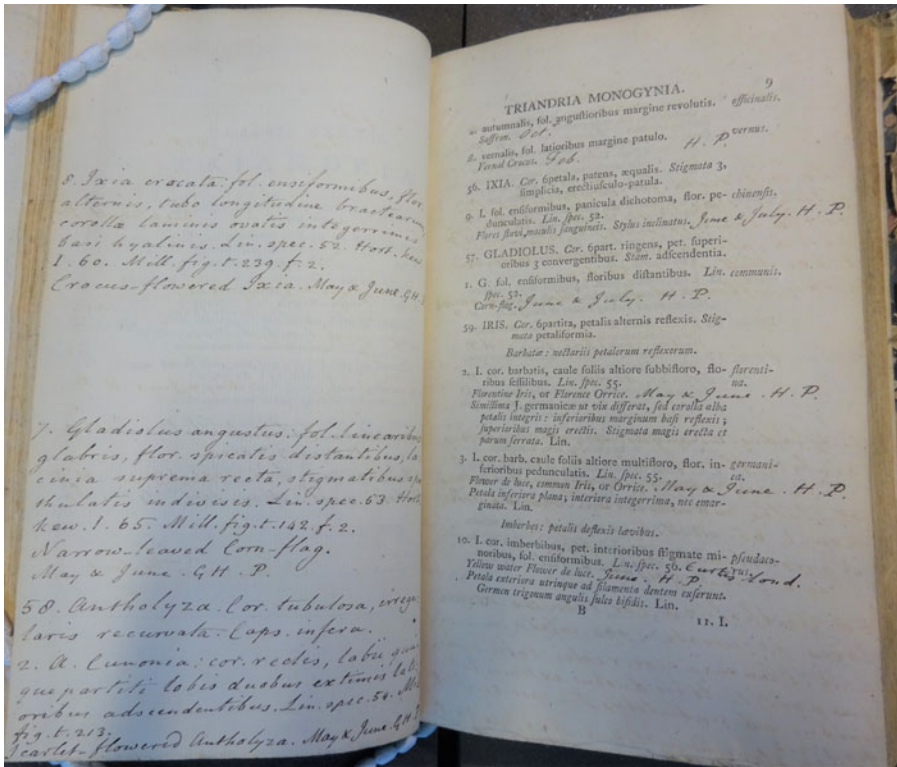 8. Ixia crocata. fol. ensiformibus, flor.
alternis, tubo longitudine bractearum,
corollæ laminis ovatis integerrimis
basi hyalinis. Lin. spec. 52. Hort. Kew.
1. 60. Mill. fig. t. 239. f. 2.
Crocus-flowered Ixia. May & June. G H.
7. Gladiolus angustus: fol. linearibus
glabris, flor. spicatis distantibus, la
cinia suprema recta, stigmatibus spa
thulatis indivisis. Lin. spec. 53. Hort.
Kew. 1. 65. Mill. fig. t. 142. f. 2.
Narrow-leaved Corn-flag.
May & June. G H. P.
58. Antholyza. Cor. tubulosa, irregu
laris recurvata. Caps. infera.
2. A. Cunonia: cor. rectis, labii quin
quepartiti lobis duobus extimis lati
oribus adscendentibus. Lin. spec. 54.
fig. t. 213.
Scarlet-flowered Antholyza. May & June. G H.
TRIANDRIA MONOGYNIA. 9
autumnalis, fol. angustioribus margine revolutis. officinalis.
Saffron. Oct.
2. vernalis, fol. latioribus margine patulo. vernus.
Vernal Crocus. Feb. H. P.
56. IXIA. Cor. 6petala, patens, æqualis. Stigmata 3,
simplicia, erectiusculo-patula.
9. I. fol. ensiformibus, panicula dichotoma, flor. pe- chinensis.
dunculatis. Lin. spec. 52.
Flores flavi, maculis sanguineis. Stylus inclinatus. June & July. H. P.
57. GLADIOLUS. Cor. 6part. ringens, pet. superi-
oribus 3 convergentibus. Stam. adscendentia.
1. G. fol. ensiformibus, floribus distantibus. Lin. communis.
spec. 52.
Corn-flag. June & July. H. P.
59. IRIS. Cor. 6partita, petalis alternis reflexis. Stig-
mata petaliformia.
Barbatæ: nectariis petalorum reflexorum.
2. I. cor. barbatis, caule foliis altiore subbifloro, flo- florenti-
ribus sessilibus. Lin. spec. 55. na.
Florentine Iris, or Florence Orrice. May & June. H. P.
Simillima I. germanicæ ut vix differat, sed corolla alba
petalis integris: inferioribus marginum basi reflexis;
superioribus magis erectis. Stigmata magis erecta et
parum serrata. Lin.
3. I. cor. barb. caule foliis altiore multifloro, flor. in- germani-
ferioribus pedunculatis. Lin. spec. 55. ca.
Flower de luce, common Iris, or Orrice. May & June. H. P.
Petala inferiora plana; interiora integerrima, nec emar-
ginata. Lin.
Imberbes: petalis deflexis lævibus.
10. I. cor. imberbibus, pet. interioribus stigmate mi- pseudaco-
noribus, fol. ensiformibus. Lin. spec. 56. Curtis Lond. rus.
Yellow water Flower de luce. June. H. P.
Petala exteriora utrinque ad filamenta dentem exserunt.
Germen trigonum angulis sulco bifidis. Lin.
B
11. I.